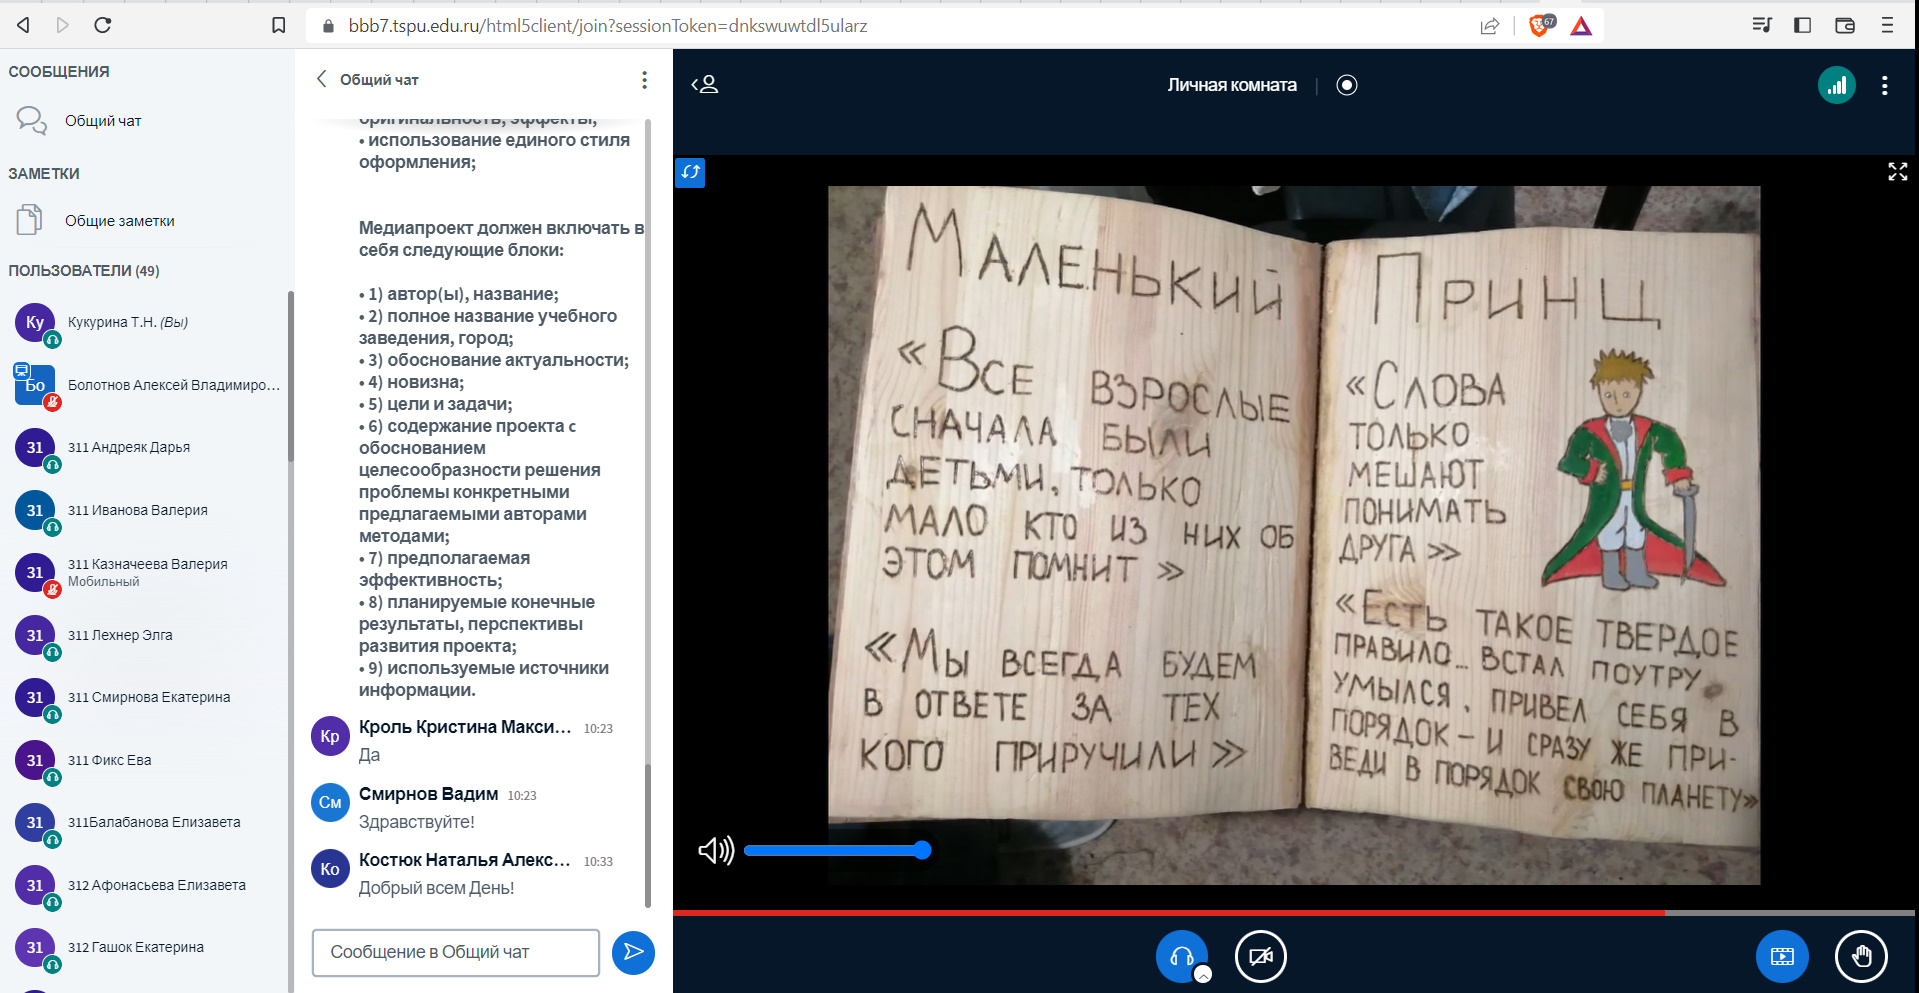 bbb7.tspu.edu.ru/html5client/join?sessionToken=dnkswuwtdl5ularz
67
СООБЩЕНИЯ
Общий чат
ЗАМЕТКИ
Общие заметки
ПОЛЬЗОВАТЕЛИ (49)
Ку
Кукурина Т.Н. (Вы)
Бо
Болотнов Алексей Владимиро...
31
311 Андреяк Дарья
31
311 Иванова Валерия
31
311 Казначеева Валерия
Мобильный
31
311 Лехнер Элга
31
311 Смирнова Екатерина
31
311 Фикс Ева
31
311Балабанова Елизавета
31
312 Афонасьева Елизавета
31
312 Гашок Екатерина
Общий чат
оригинальность, эффекты;
• использование единого стиля
оформления;
Медиапроект должен включать в
себя следующие блоки:
• 1) автор(ы), название;
• 2) полное название учебного
заведения, город;
• 3) обоснование актуальности;
• 4) новизна;
• 5) цели и задачи;
• 6) содержание проекта с
обоснованием
целесообразности решения
проблемы конкретными
предлагаемыми авторами
методами;
• 7) предполагаемая
эффективность;
• 8) планируемые конечные
результаты, перспективы
развития проекта;
• 9) используемые источники
информации.
Кр
Кроль Кристина Макси... 10:23
Да
См
Смирнов Вадим 10:23
Здравствуйте!
Ко
Костюк Наталья Алекс... 10:33
Добрый всем День!
Сообщение в Общий чат
Личная комната
МАЛЕНЬКИЙ
«ВСЕ ВЗРОСЛЫЕ
СНАЧАЛА БЫЛИ
ДЕТЬМИ, ТОЛЬКО
МАЛО КТО ИЗ НИХ ОБ
ЭТОМ ПОМНИТ»
«МЫ ВСЕГДА БУДЕМ
В ОТВЕТЕ ЗА ТЕХ
КОГО ПРИРУЧИЛИ»
ПРИНЦ
«СЛОВА
ТОЛЬКО
МЕШАЮТ
ПОНИМАТЬ
ДРУГА»
«ЕСТЬ ТАКОЕ ТВЕРДОЕ
ПРАВИЛО... ВСТАЛ ПОУТРУ
УМЫЛСЯ, ПРИВЕЛ СЕБЯ В
ПОРЯДОК – И СРАЗУ ЖЕ ПРИ-
ВЕДИ В ПОРЯДОК СВОЮ ПЛАНЕТУ»